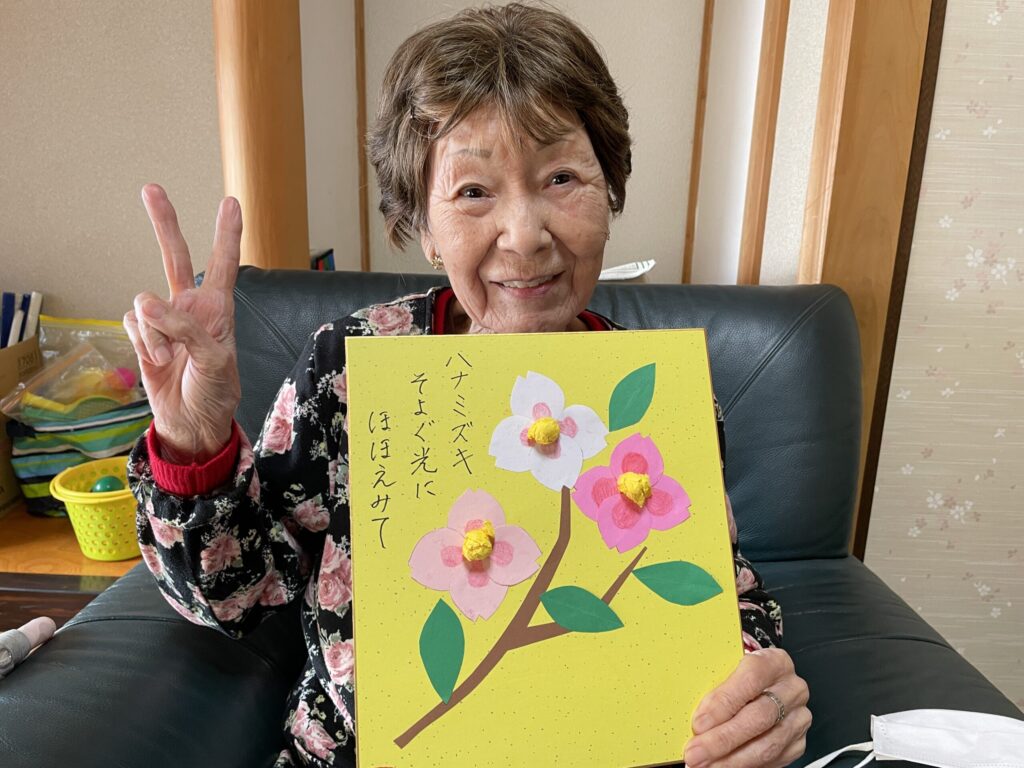 ハナミズキ
そよぐ光に
ほほえみて